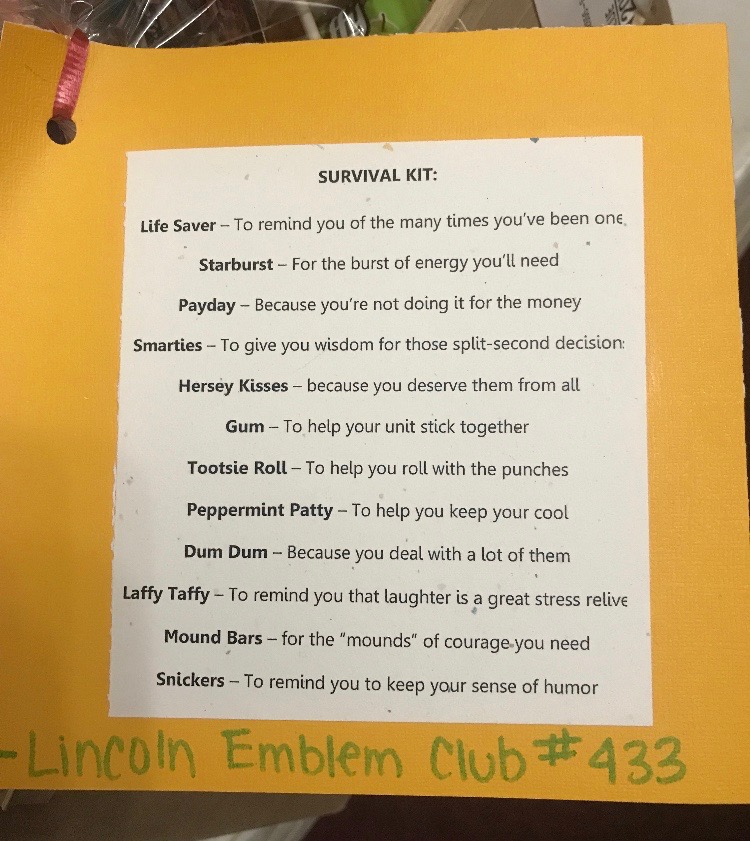 SURVIVAL KIT:
Life Saver – To remind you of the many times you've been one
Starburst – For the burst of energy you'll need
Payday – Because you're not doing it for the money
Smarties – To give you wisdom for those split-second decision
Hersey Kisses – because you deserve them from all
Gum – To help your unit stick together
Tootsie Roll – To help you roll with the punches
Peppermint Patty – To help you keep your cool
Dum Dum – Because you deal with a lot of them
Laffy Taffy – To remind you that laughter is a great stress relive
Mound Bars – for the "mounds" of courage you need
Snickers – To remind you to keep your sense of humor
-Lincoln Emblem Club #433